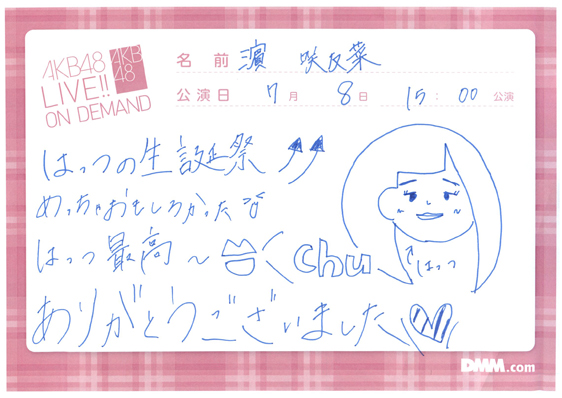 AKB48
LIVE!!
ON DEMAND
AKB
48
名前 濵 咲友菜
公演日 7月 8日 15:00 公演
はっつの生誕祭
めっちゃおもしろかったな
はっつ最高~
chu
はっつ
ありがとうございました
DMM.com